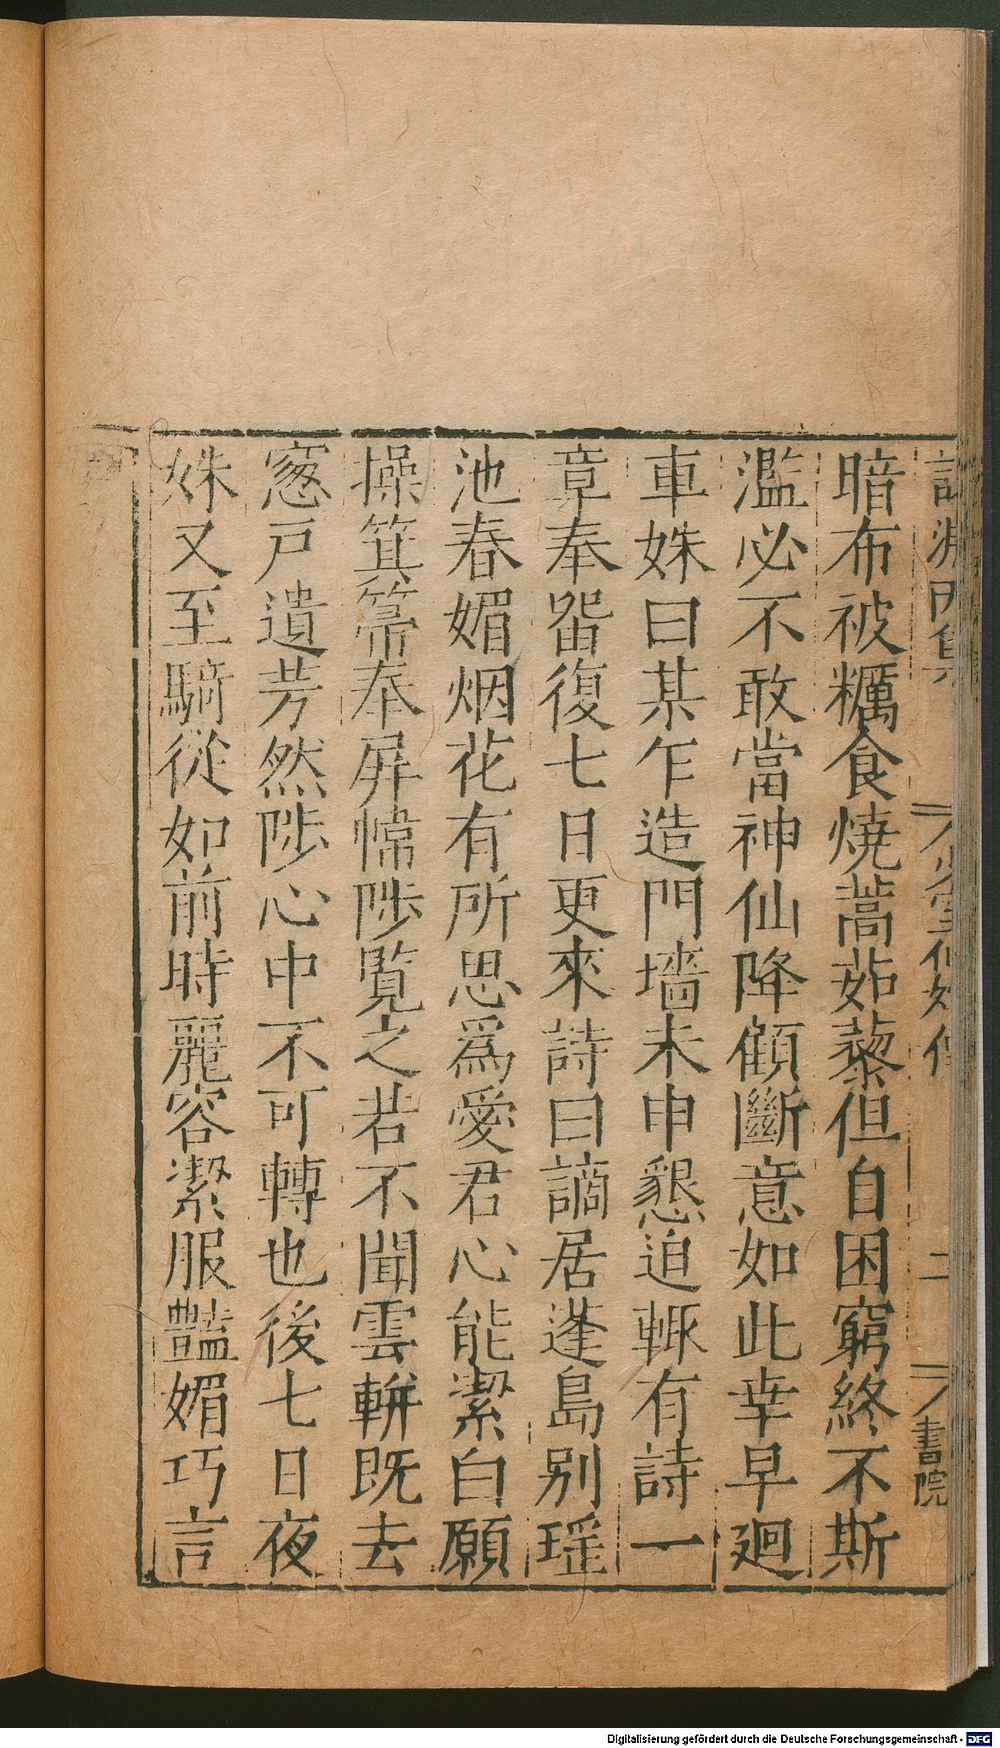 暗布被糲食燒蒿茹藜但自困窮終不斯
濫必不敢當神仙降顧斷意如此幸早廻
車姝曰某乍造門墻未申懇迫輙有詩一
章奉畱復七日更來詩曰謫居蓬島別瑶
池春媚烟花有所思爲愛君心能潔白願
操箕箒奉屛幃陟覧之若不聞雲輧既去
窓戸遺芳然陟心中不可轉也後七日夜
姝又至騎從如前時麗容潔服豔媚巧言
二
書院
Digitalisierung gefördert durch die Deutsche Forschungsgemeinschaft - DFG